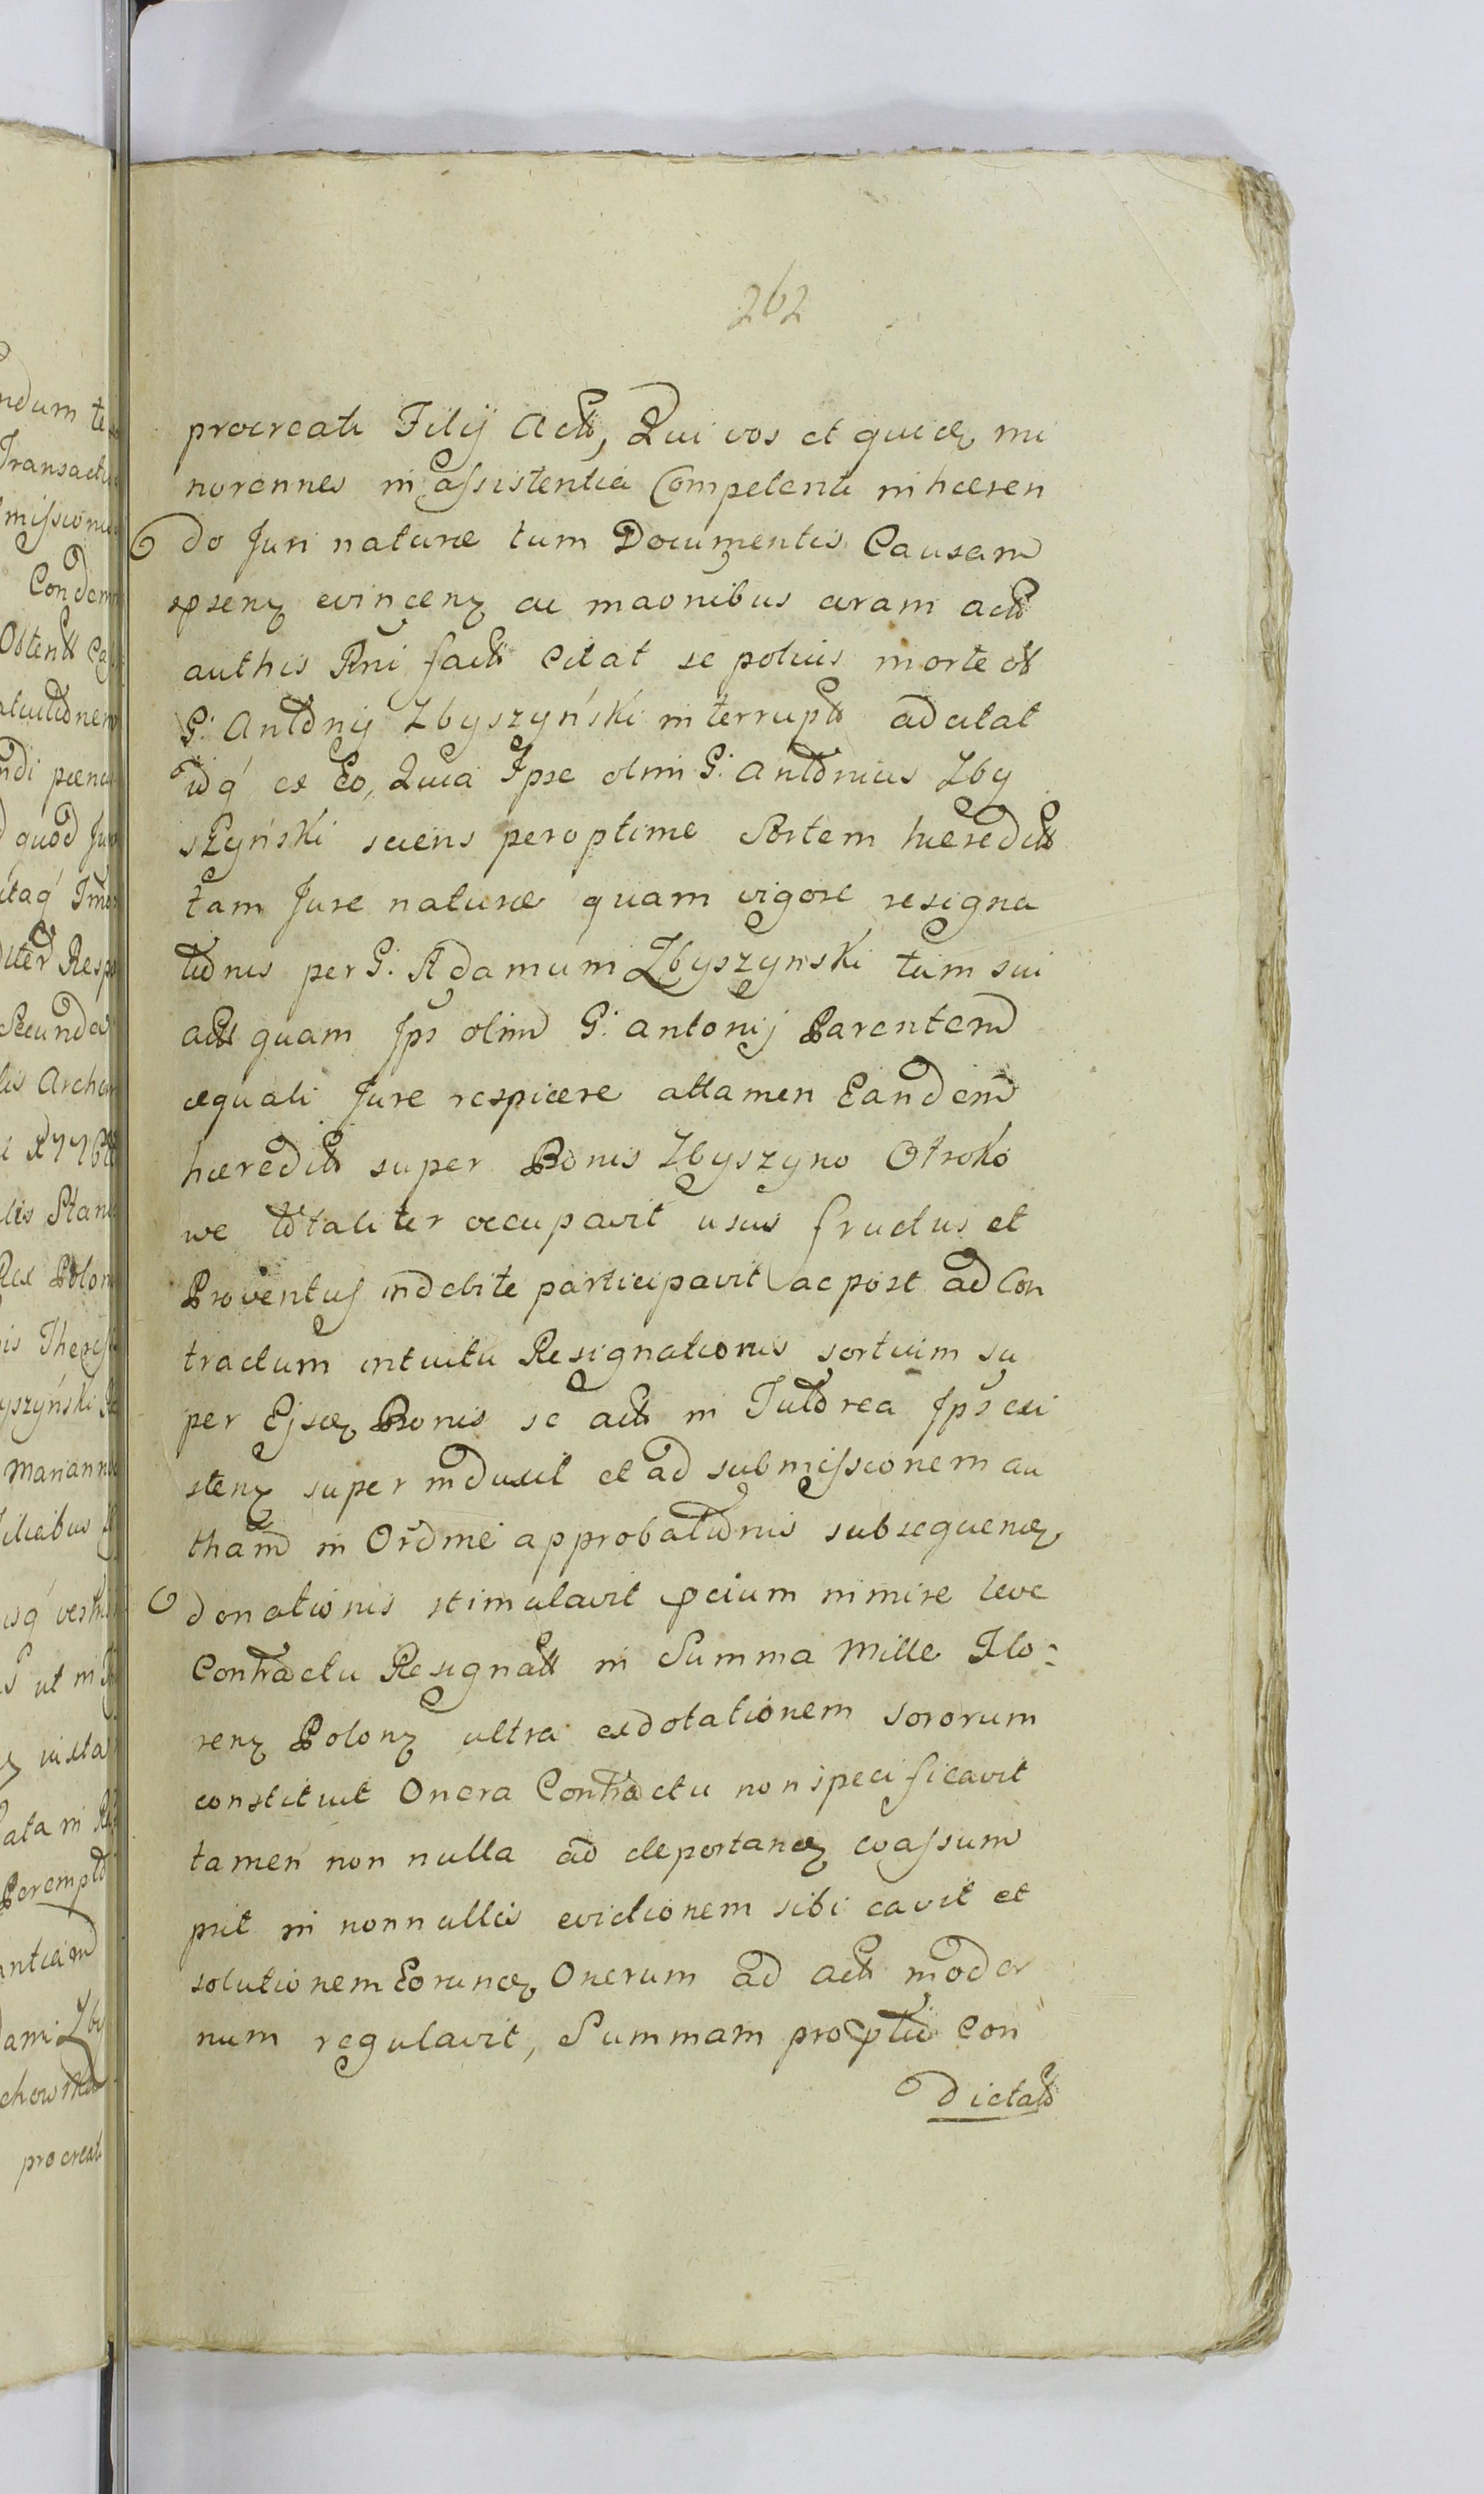 262
procreati Filij Actt, Qui vos et quidz mi
norennes in assistentia Competenti inhæren
do Juri naturæ tum Documentis Causam
pñsenz evincenz ac maonibus coram actt
authis Rni factt citat se potius morte olt
G: Antonij Zbyszyński interruptt adcitat
idq́ ex Eo, Quia Ipse olim G: Antonius Zby
szyński sciens peroptime Sortem hæreditt
tam Jure naturæ quam vigore resigna
tionis per G: Adamum Zbyszynski tum sui
actt quam Jps olim G: Antonij Parentem
æquali Jure respicere attamen Eandem
hæreditt super Bonis Zbyszyno Otroko
we totaliter occupavit usus fructus et
Proventus indebite participavit ac post ad Con
tractum intuitu Resignationis sortium su
per Ejsdz Bonis se actt in Tutorea Jps exi
stenz super induxit et ad submissionem au
tham in Ordine approbationis subsequendz
donationis stimulavit pcium nimire leve
Contractu Resignatt in Summa Mille Flo:
renz Polonz ultra exdotationem sororum
constituit Onera Contractu non specificavit
tamen non nulla ad deportandz coassum
psit in nonnullis evictionem sibi cavit et
solutionem Eorundz Onerum ad actt moder
num regulavit, Summam pro ptio Con
dictatt
ndum te
Transactu
missionis
Condem
Obtentt
ndi pæna
quod Ju
itaq́
Resp
Secunda
lis
lis Stan
Rex Polon
is Theres
yszyński
Mariann
ut in
iuxta
ata in
Perempto
antiam
ami Zby
chowska
procreati